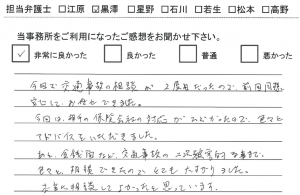 担当弁護士 □江原 ☑黒澤 □星野 □石川 □若生 □松本 □高野
当事務所をご利用になったご感想をお聞かせ下さい。
☑ 非常に良かった □ 良かった □ 普通 □ 悪かった
今回で交通事故の相談が2度目だったので前回同様
安心してお任せできました。
今回は、相手の保険会社の対応がひどかったので、色々と
アドバイスをいただきました。
あと、金銭面など、交通事故の二次被害的な事まで、
色々と相談できたのでとても大変助かりました。
本当に相談してよかったと思っています。